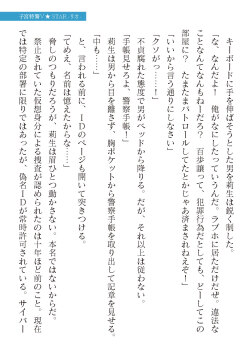 キーボードに手を伸ばそうとした男を莉生は鋭く制した。
「な、なんだよ！　俺がなにしたっていうんだ。ラブホに居ただけだぜ。違法な
ことなんてなんもねーだろ？　百歩譲って、犯罪行為だとしても、どーしてこの
部屋に？　たまたまパトロールしてたとかじゃあ済まされねえぞ！」
「いいから言う通りにしなさい」
「クソがっ……！」
不貞腐れた態度で男がベッドから降りる。だが、それ以上は従わない。
「手帳見せろよ、警察手帳！」
莉生は男から目を離さず、胸ポケットから警察手帳を取り出して記章を見せる。
「中も……」
と、言われる前に、ＩＤのページも開いて突きつける。
「てめえ、名前は憶えたからな……」
脅しのつもりだろうが、莉生は眉ひとつ動かさない。本名ではないからだ。
禁止されていた仮想身分による捜査が認められたのは十年ほど前のこと、現在
では特定の部署に限りではあったが、偽名ＩＤが常時許可されている。サイバー